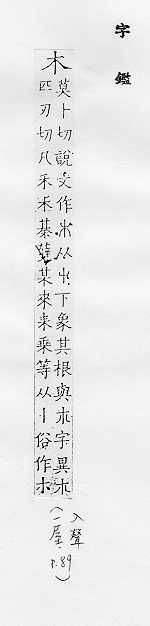 字鑑
木
莫卜切說文作木从屮下象其根與朩字異朩
匹刃切凡禾禾棊某來耒乘等从丨俗作
入聲
(一屋, P.89)